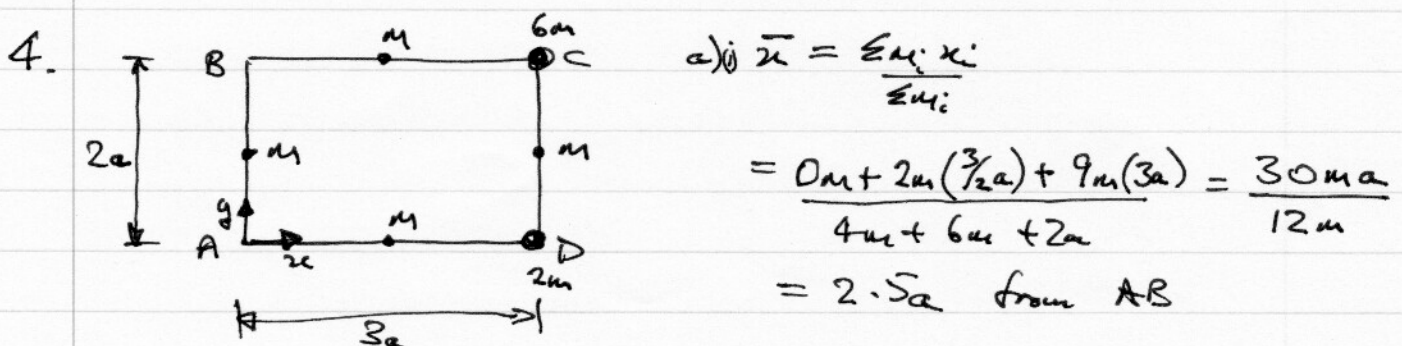 4.
B
m
6m
C
2a
m
m
y
A
x
m
D
2m
3a
a)i) x̄ = Σmᵢxᵢ / Σmᵢ
= 0m + 2m(3/2a) + 9m(3a) / 4m + 6m + 2a = 30ma / 12m
= 2.5a from AB